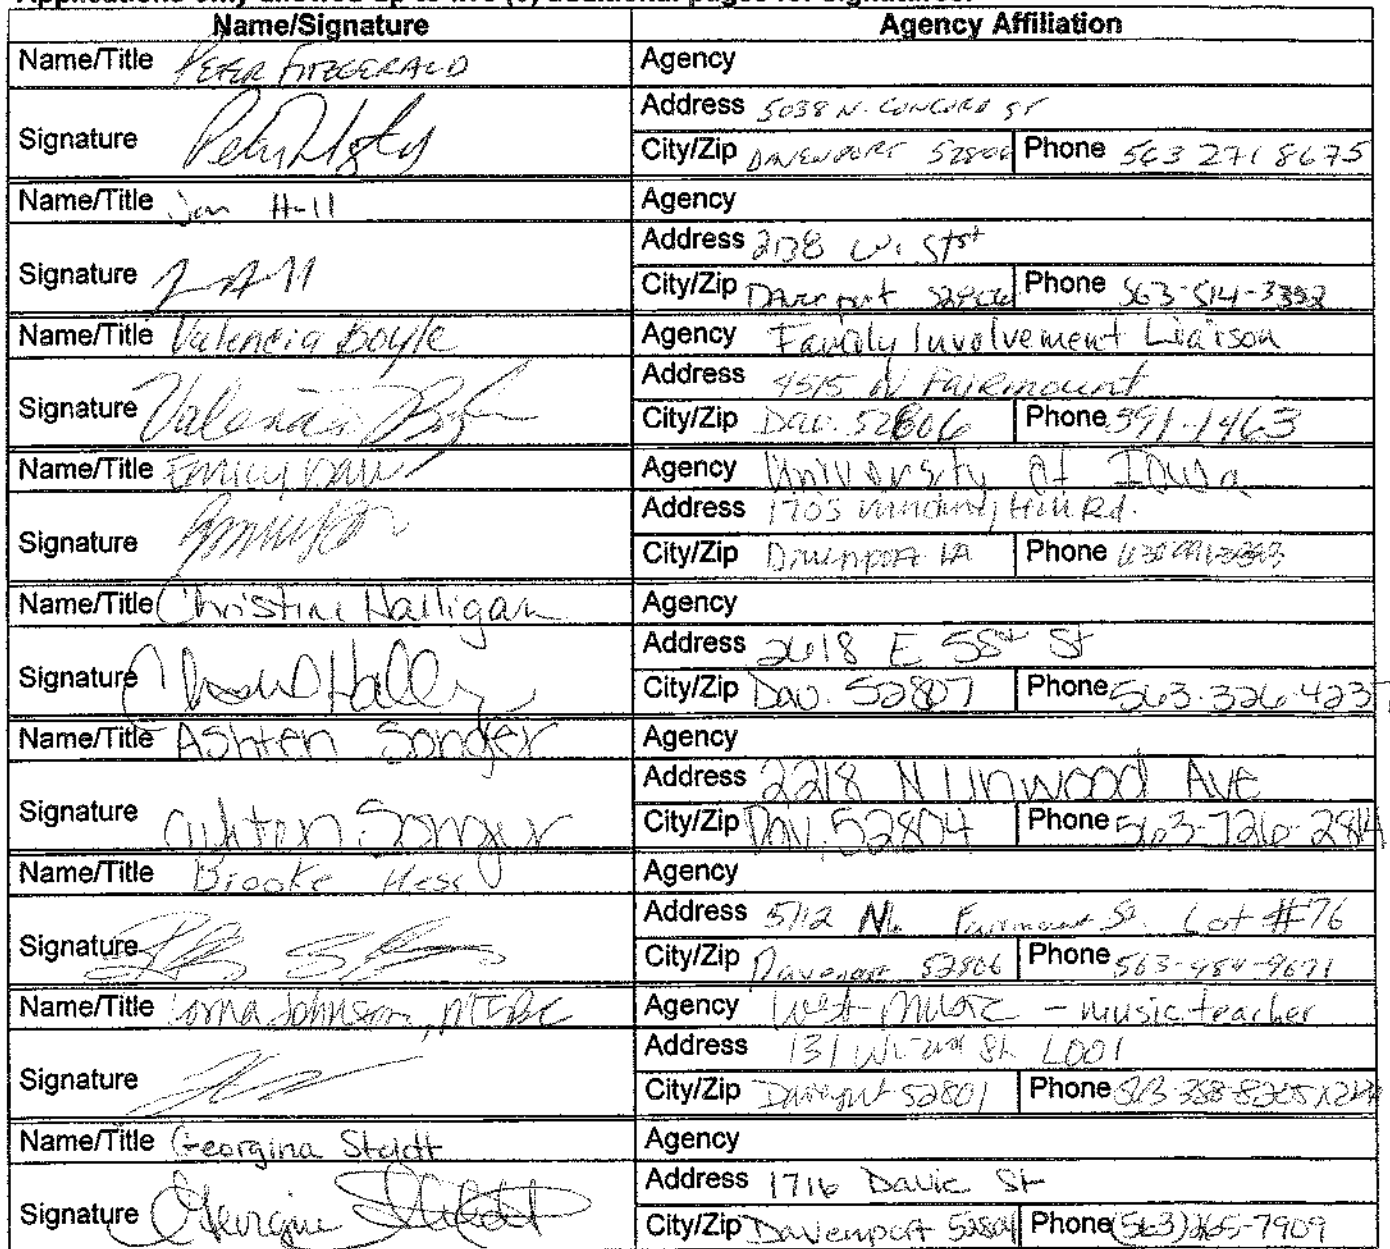 Name/Signature Agency Affiliation
Name/Title PETER FITZGERALD Agency
Signature Address 5038 N. CONCORD ST
City/Zip DAVENPORT 52806 Phone 563 271 8675
Name/Title Hall Agency
Signature Address W. St
City/Zip Davenport Phone 563-514-3352
Name/Title Valencia Boyle Agency Family Involvement Liaison
Signature Valencia Address 4515 N FAIRMOUNT
City/Zip Dav. 52806 Phone 391-1463
Name/Title Emily Agency University of Iowa
Signature Address 1705 Hill Rd.
City/Zip Davenport IA Phone
Name/Title Christine Halligan Agency
Signature Address 2618 E St
City/Zip Dav. 52807 Phone 563-326-4235
Name/Title Ashten Songer Agency
Signature Ashten Songer Address 2218 N Linwood Ave
City/Zip Dav, 52804 Phone 563-726-2814
Name/Title Brooke Hess Agency
Signature Address 5112 N. Fairmount St. Lot #76
City/Zip Davenport 52806 Phone 563-484-9671
Name/Title Lorna Johnson, MT-BC Agency West Music - music teacher
Signature Address 131 W. 2nd St. L001
City/Zip Davenport 52801 Phone
Name/Title Georgina Agency
Signature Address 1716 St
City/Zip Davenport Phone (563)265-7909